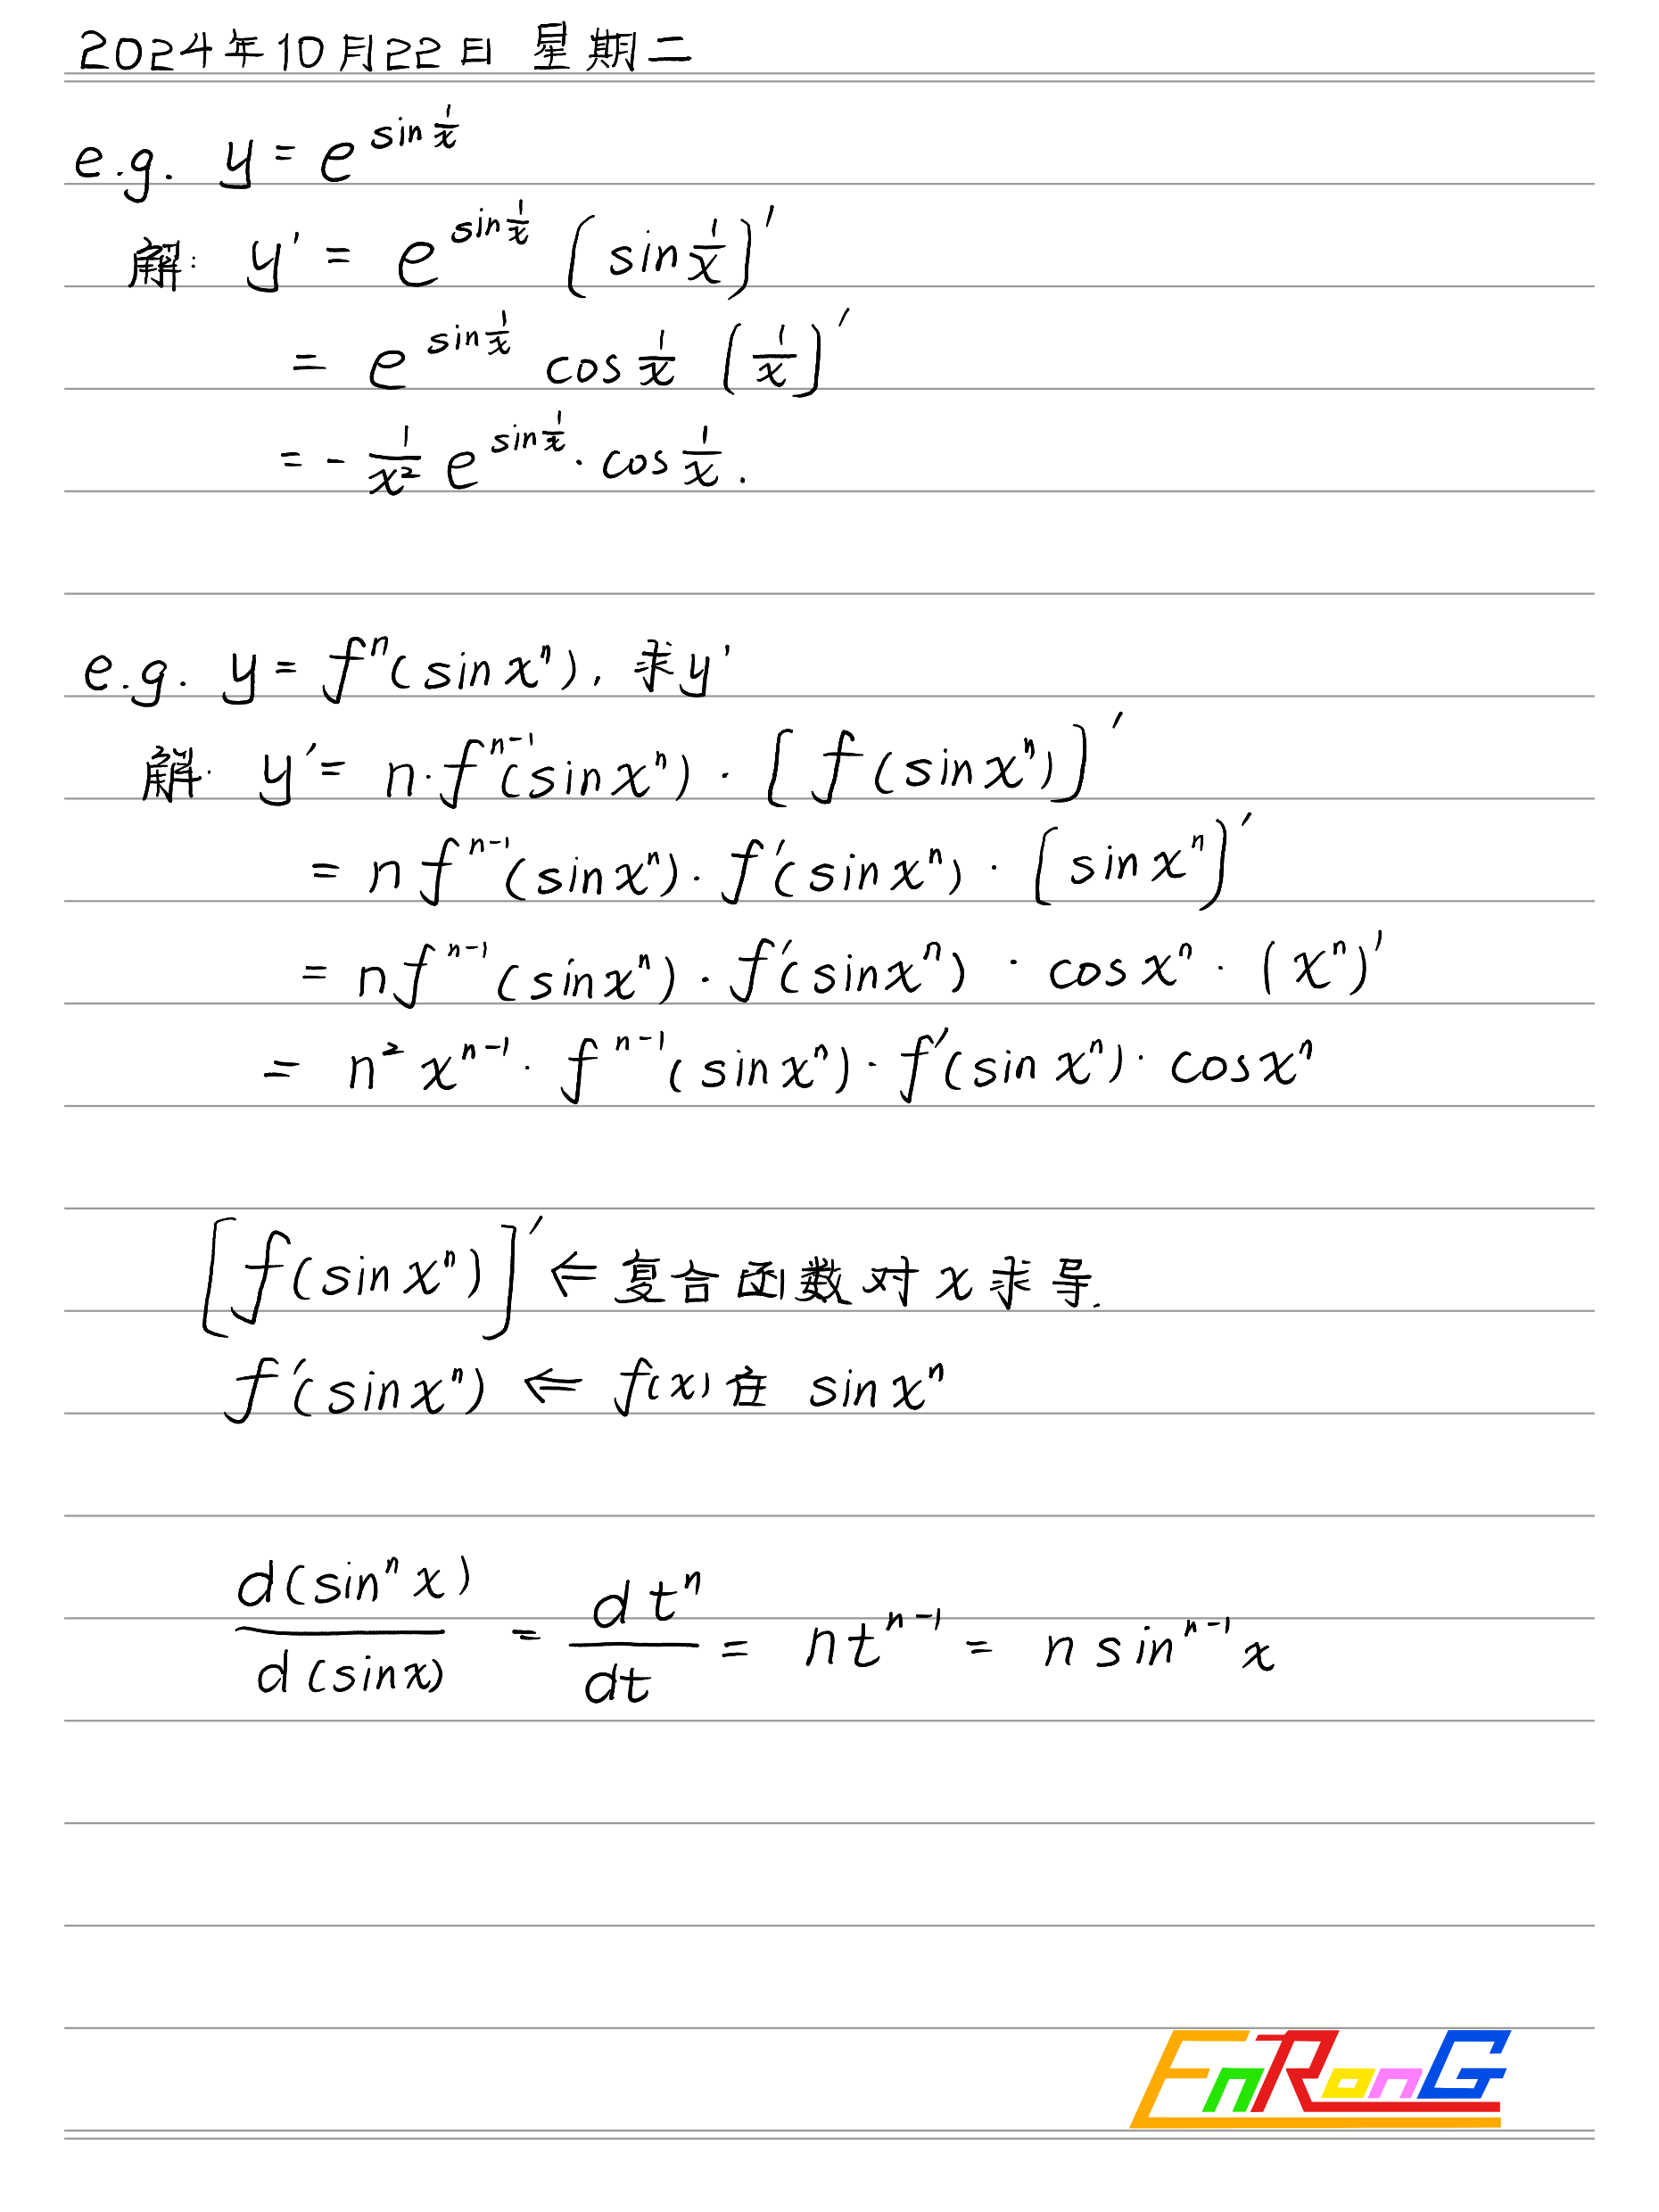 2024年10月22日 星期二
e.g. y = e^{sin\frac{1}{x}}
解: y' = e^{sin\frac{1}{x}} [sin\frac{1}{x}]'
= e^{sin\frac{1}{x}} cos\frac{1}{x} [\frac{1}{x}]'
= -\frac{1}{x^2} e^{sin\frac{1}{x}} · cos\frac{1}{x}.
e.g. y = f^n(sin x^n), 求y'
解: y' = n·f^{n-1}(sin x^n) · [f(sin x^n)]'
= n f^{n-1}(sin x^n) · f'(sin x^n) · [sin x^n]'
= n f^{n-1}(sin x^n) · f'(sin x^n) · cos x^n · (x^n)'
= n^2 x^{n-1} · f^{n-1}(sin x^n) · f'(sin x^n) · cos x^n
[f(sin x^n)]' ⇐ 复合函数对 x 求导.
f'(sin x^n) ⇐ f(x)在 sin x^n
\frac{d(sin^n x)}{d(sin x)} = \frac{dt^n}{dt} = nt^{n-1} = n sin^{n-1} x
EnRonG